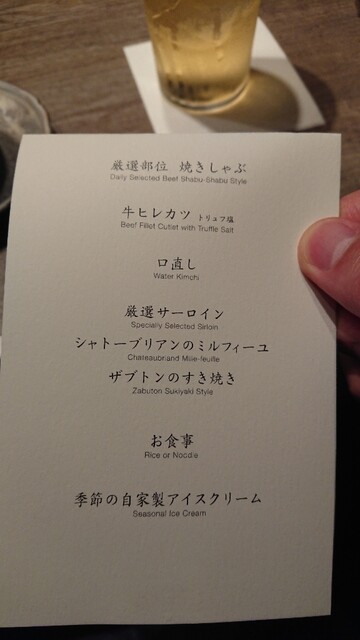 厳選部位 焼きしゃぶ
Daily Selected Beef Shabu-Shabu Style
牛ヒレカツ トリュフ塩
Beef Fillet Cutlet with Truffle Salt
口直し
Water Kimchi
厳選サーロイン
Specially Selected Sirloin
シャトーブリアンのミルフィーユ
Chateaubriand Mille-feuille
ザブトンのすき焼き
Zabuton Sukiyaki Style
お食事
Rice or Noodle
季節の自家製アイスクリーム
Seasonal Ice Cream